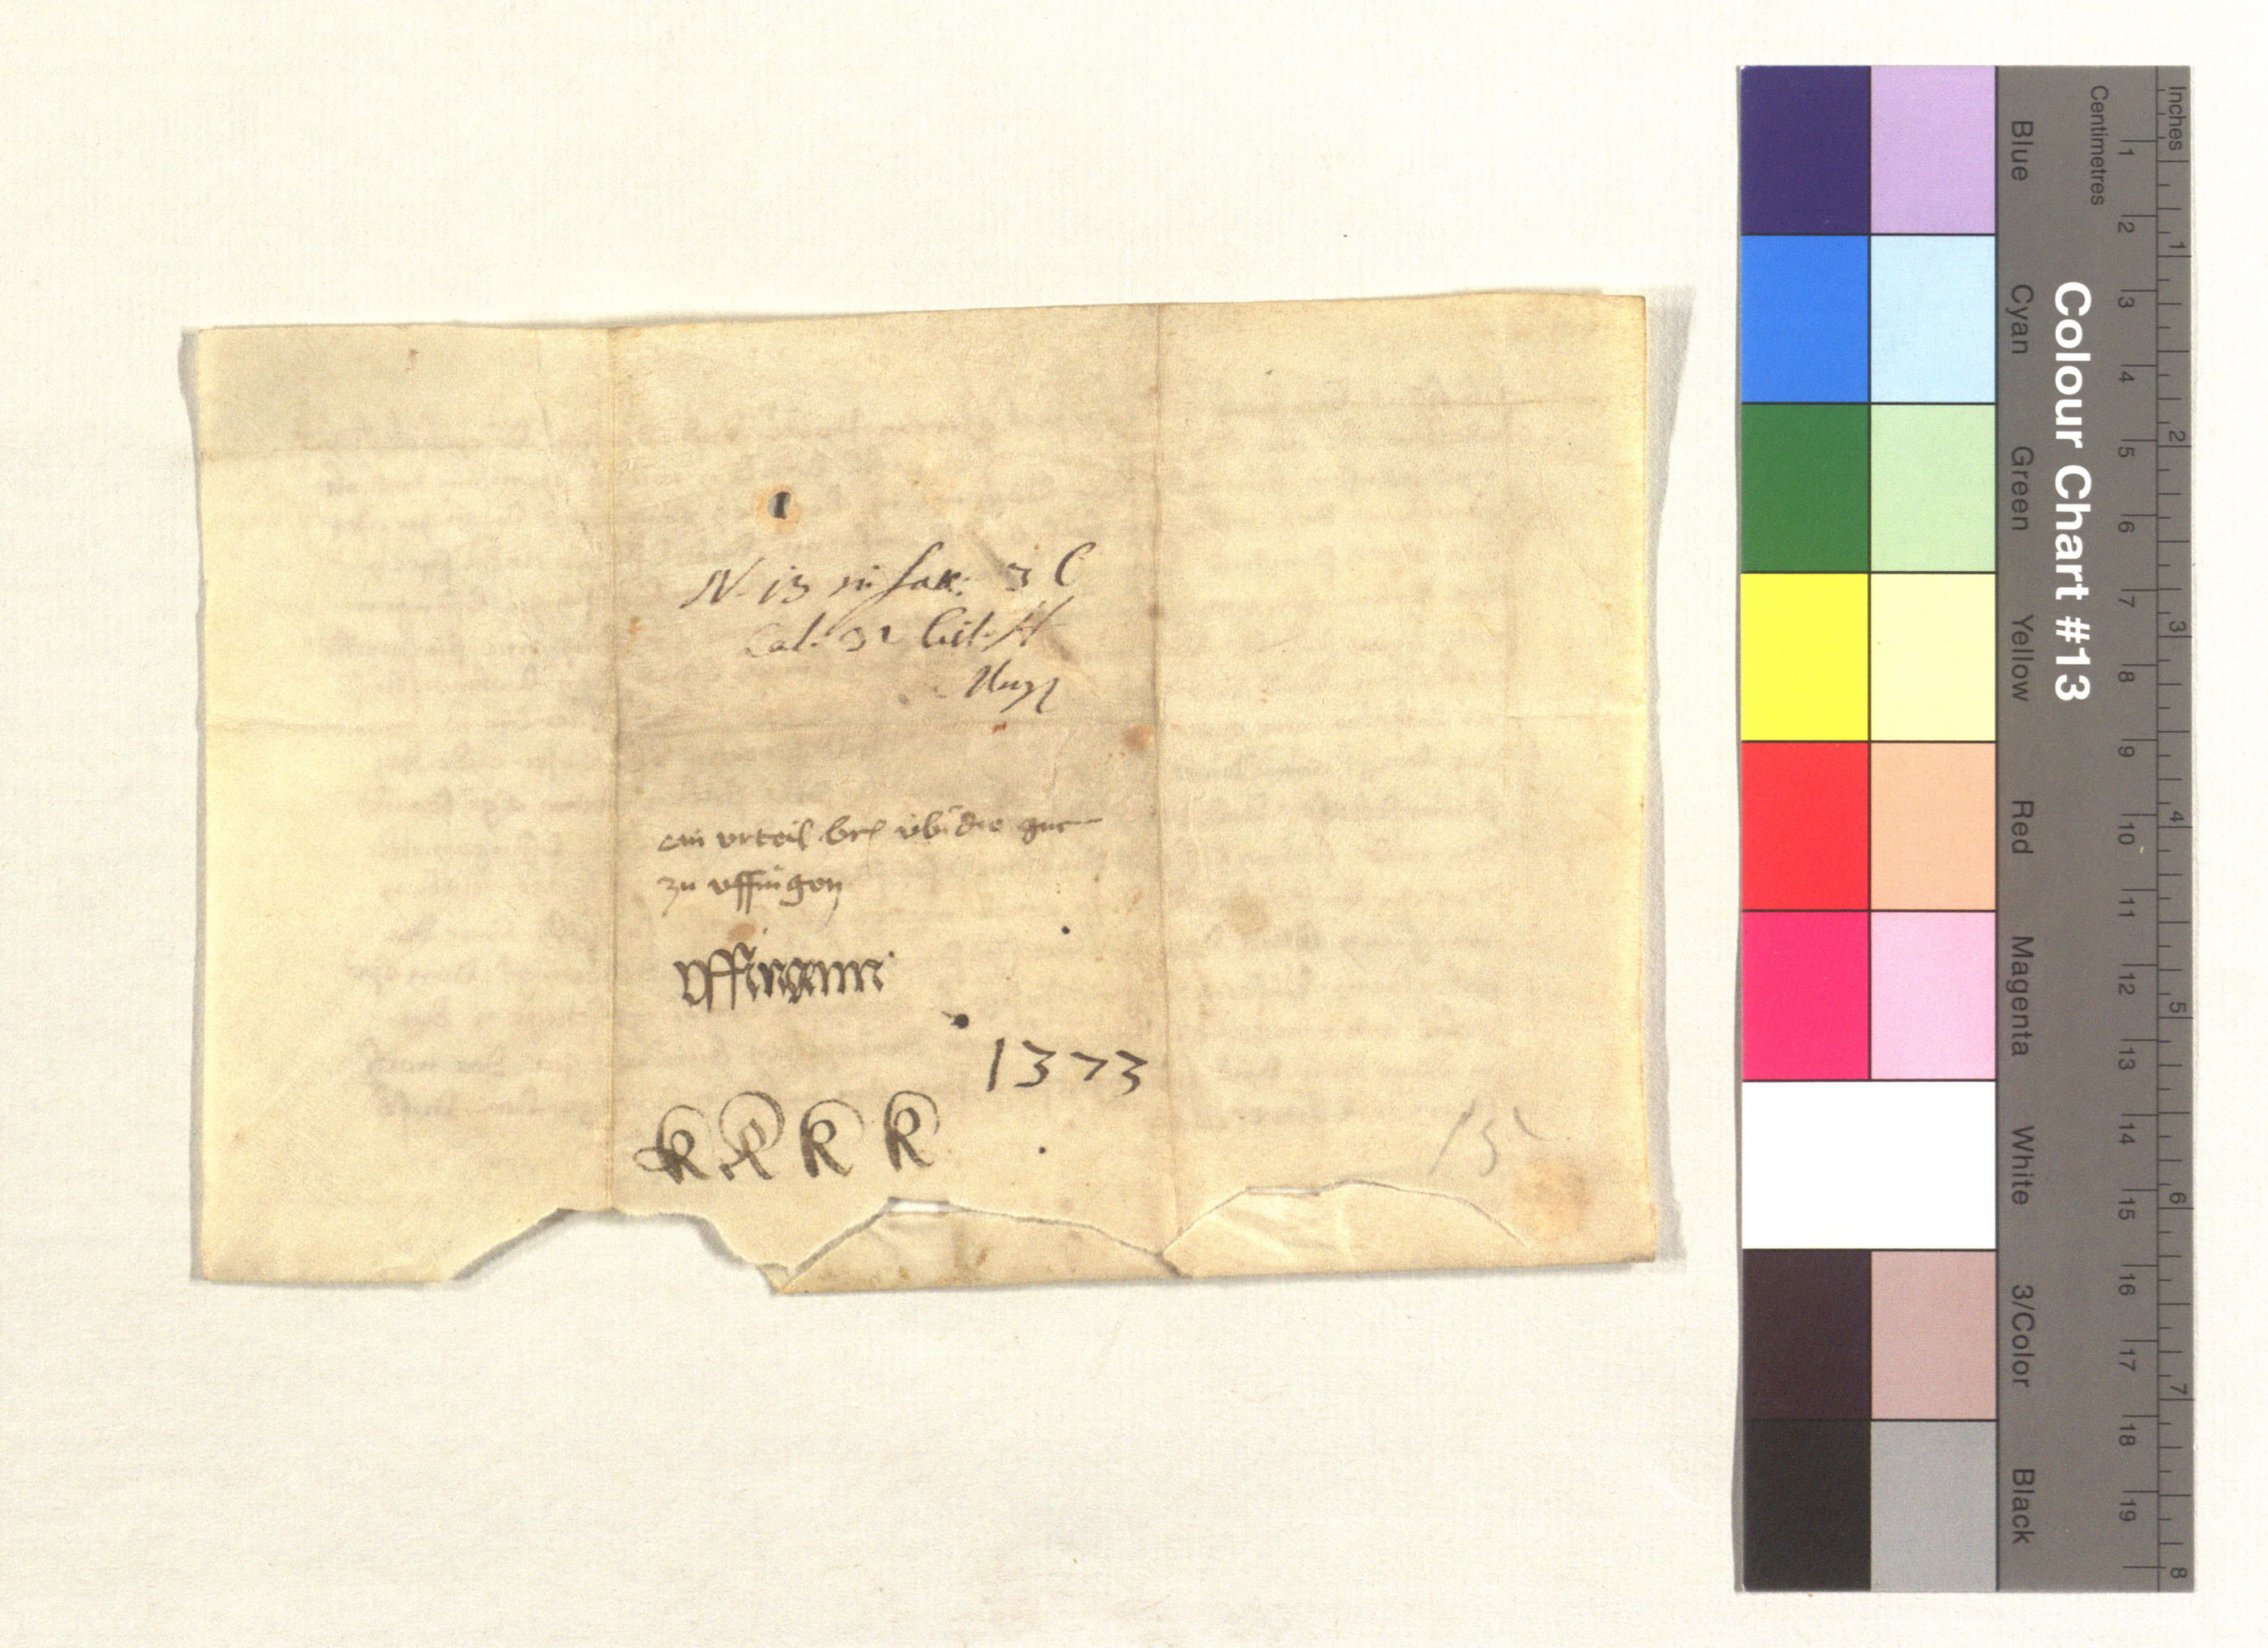 N. 13 in Sac: 3 C
Cal. 32 lit. H
ein vrteil brf vb die gut
zu vffingen
vffingenn
1373
k k k k
15
Colour Chart #13
Blue Cyan Green Yellow Red Magenta White 3/Color Black
Centimetres 1 2 3 4 5 6 7 8 9 10 11 12 13 14 15 16 17 18 19
Inches 1 2 3 4 5 6 7 8